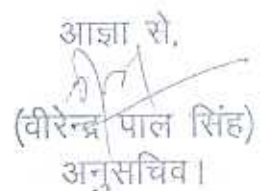 आज्ञा से,
(वीरेन्द्र पाल सिंह)
अनुसचिव।